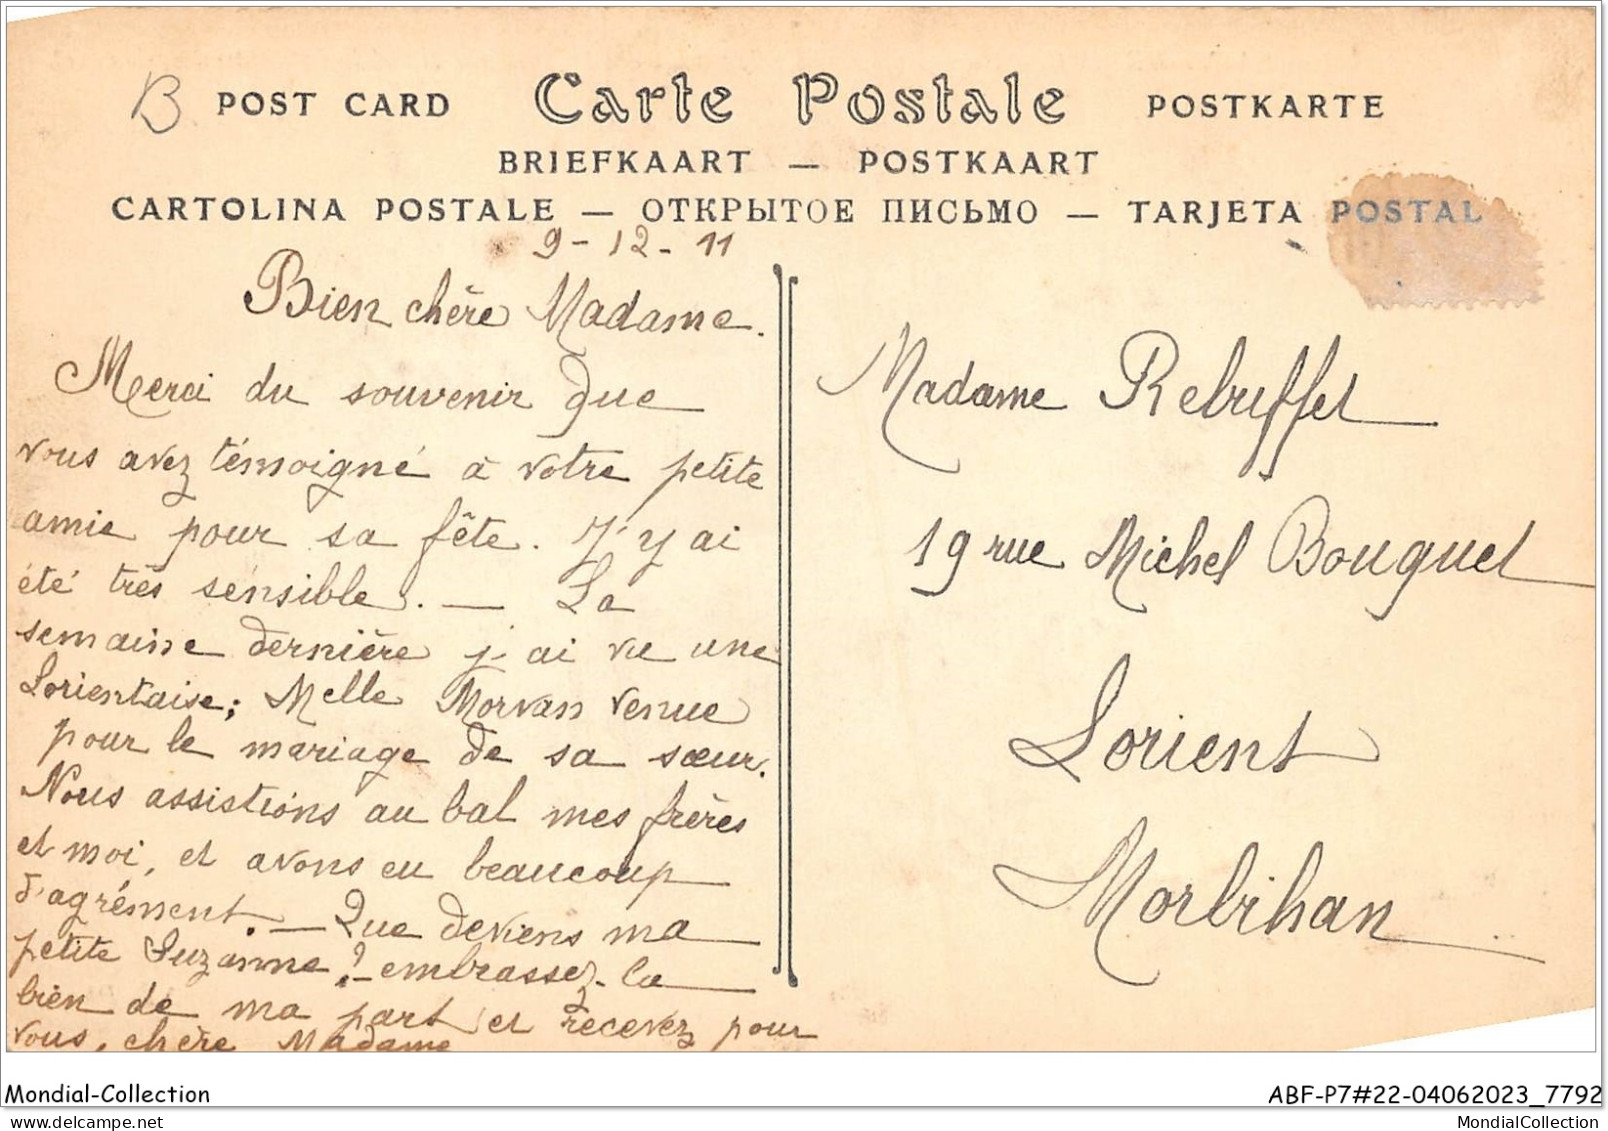 B POST CARD Carte Postale POSTKARTE
BRIEFKAART — POSTKAART
CARTOLINA POSTALE — ОТКРЫТОЕ ПИСЬМО — TARJETA POSTAL
9-12-11
Bien chère Madame.
Merci du souvenir que
vous avez témoigné à votre petite
amie pour sa fête. J'y ai
été très sensible. — La
semaine dernière j'ai vu une
Lorientaise; Melle Morvan venue
pour le mariage de sa sœur.
Nous assistions au bal mes frères
et moi, et avons eu beaucoup
d'agrément. — Que deviens ma
petite Suzanne? - embrassez-la
bien de ma part et recevez pour
vous, chère Madame
Madame Rebuffet
19 rue Michel Bouquet
Lorient
Morbihan
Mondial-Collection
ABF-P7#22-04062023_7792
www.delcampe.net
MondialCollection